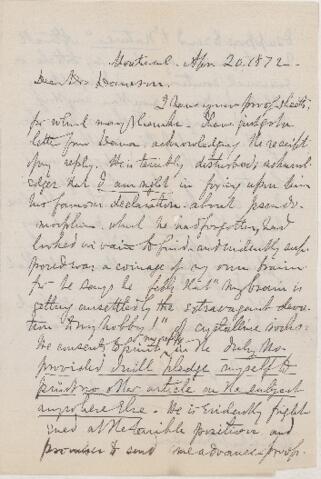 Montreal. Apr 20. 1872
Dear Mr Dawson.
I have your proof sheets
for which many thanks. I have just got a
letter from Dana acknowledging the receipt
of my reply. He is terribly disturbed, acknow
ledges that I am right in fixing upon him
his famous declaration about pseudo-
morphism which he had forgotten, had
looked in vain to find and evidently sup
posed was a coinage of my own brain
for he says he feels that "my brain is
getting unsettled by the extravagant devo
tion to my hobby!" of crystalline rocks.
He consents to print my reply in the July No
provided I will pledge myself to
print no other article on the subject
anywhere else. He is evidently fright
ened at the terrible position and
promises to send me advance proofs.